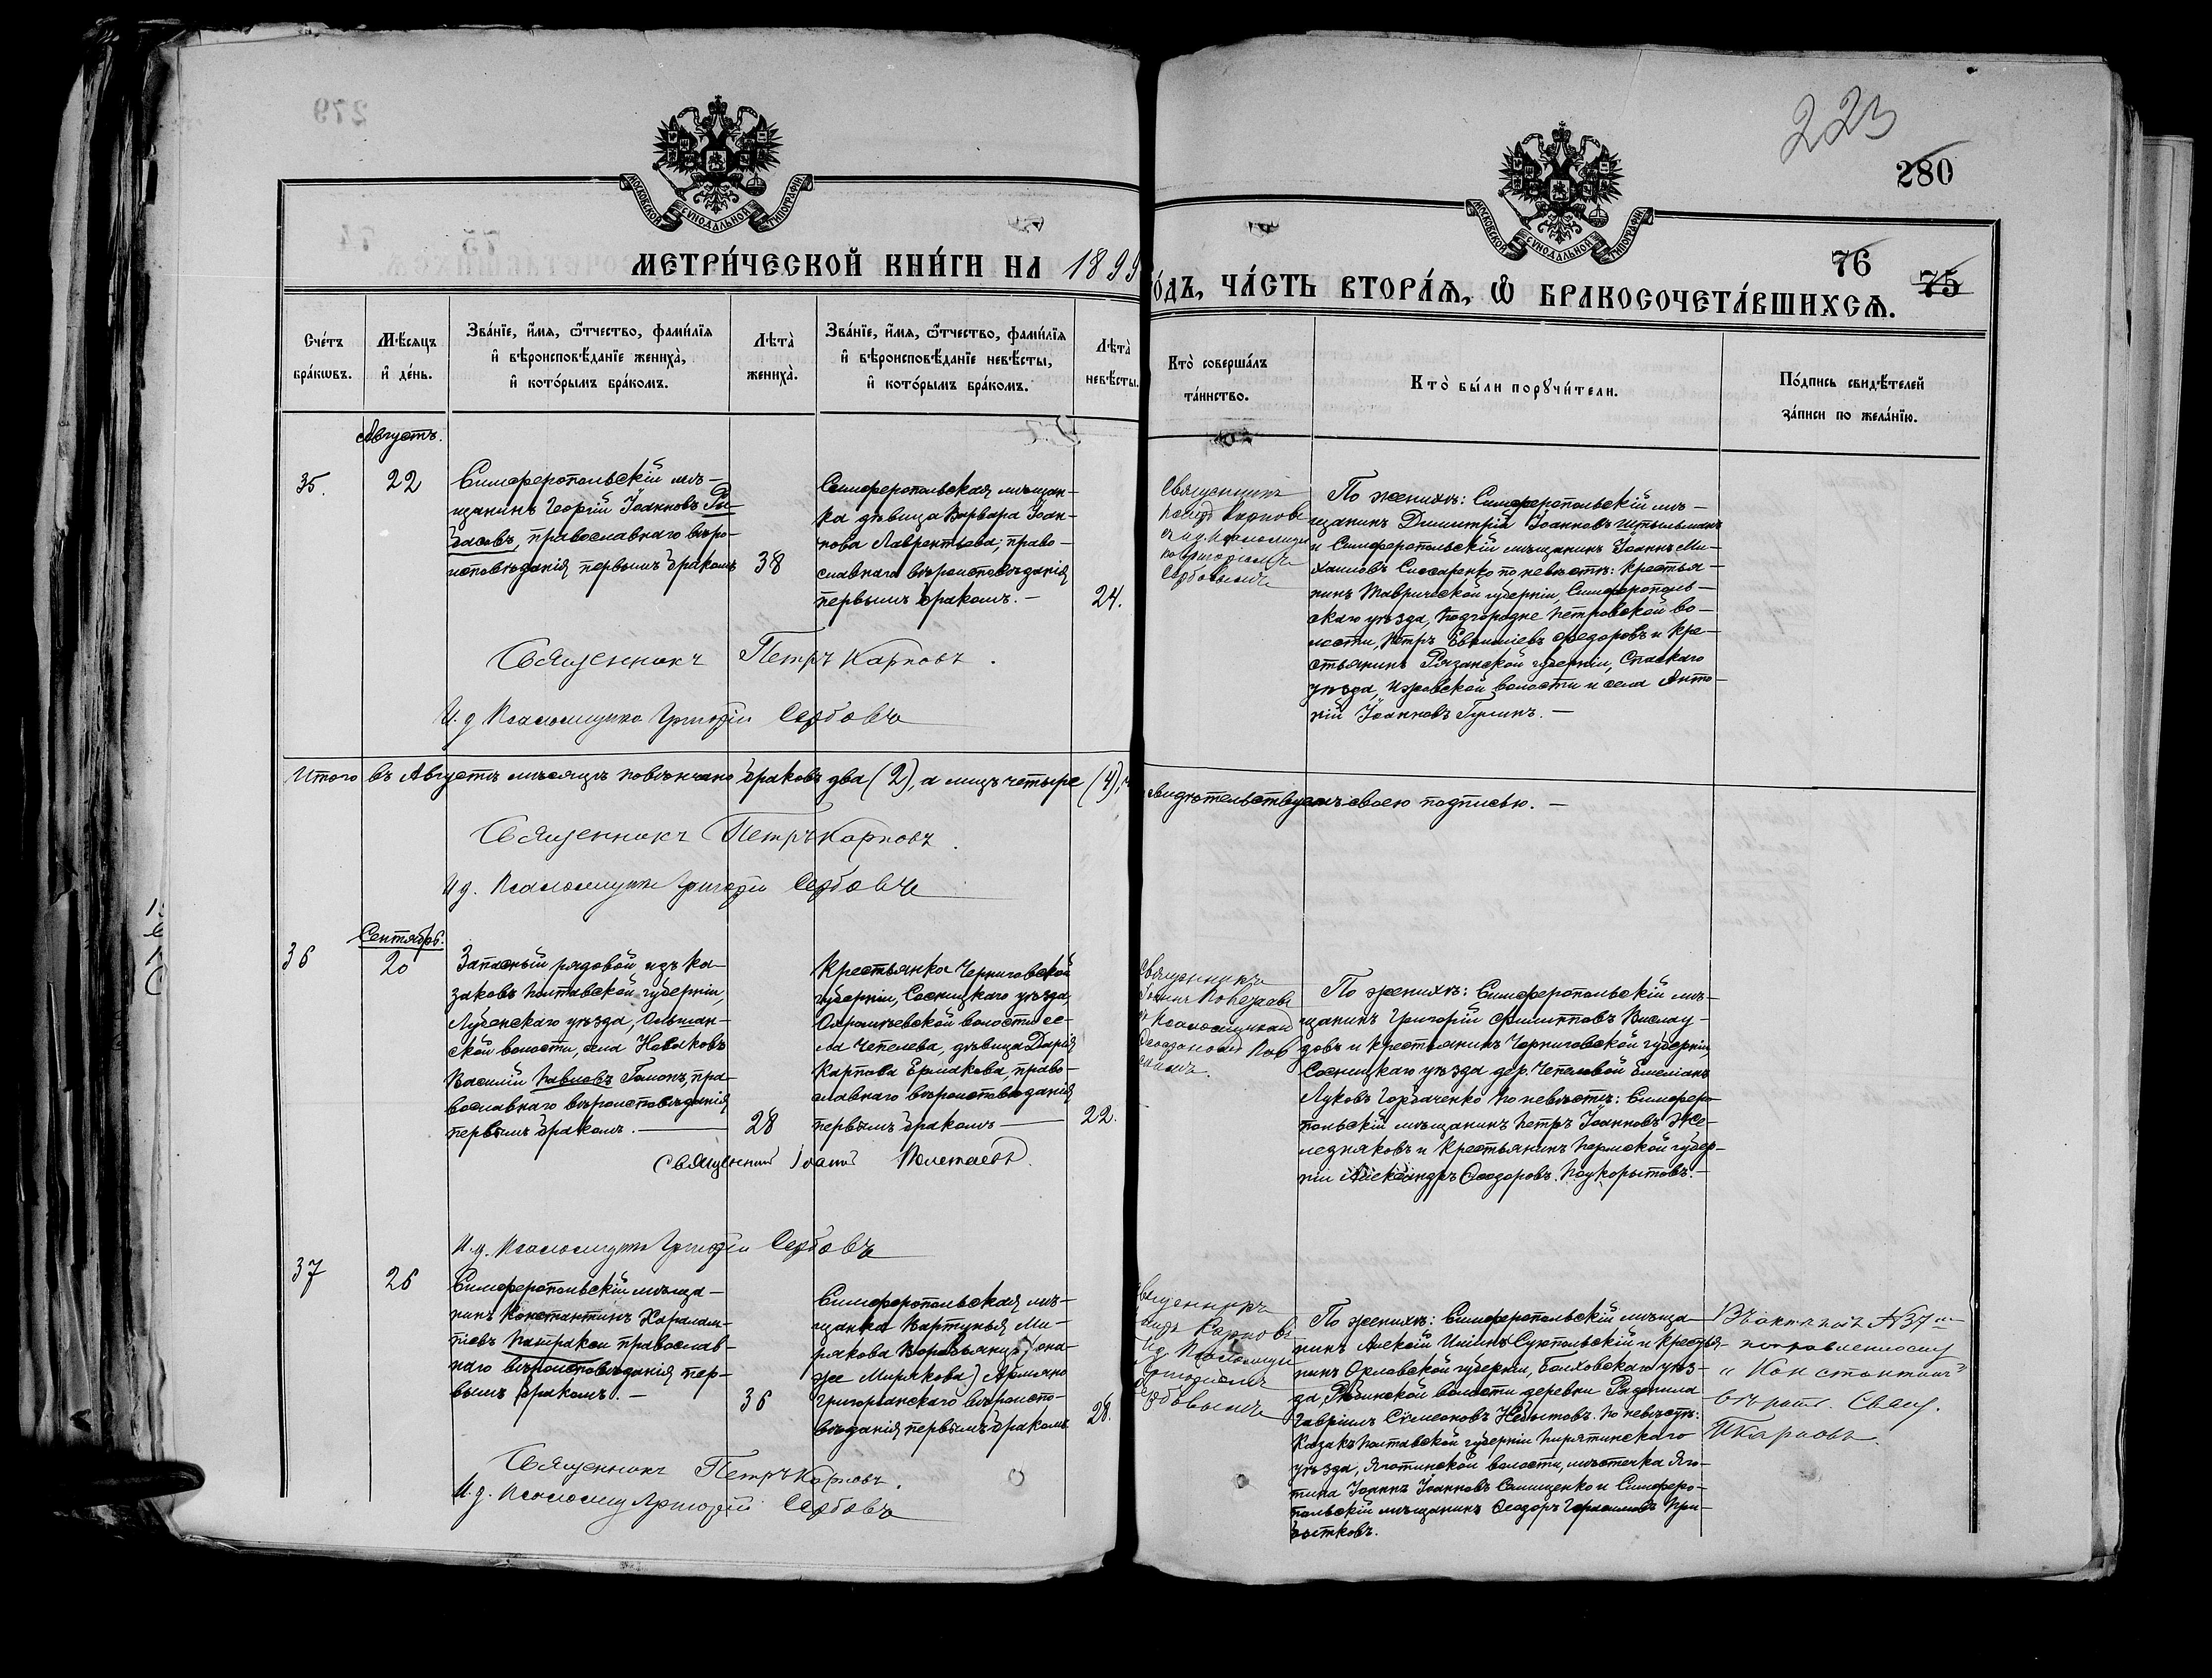 279
223
280
МОСКОВСКОЙ СУНОДАЛЬНОЙ ТИПОГРАФІИ
МОСКОВСКОЙ СУНОДАЛЬНОЙ ТИПОГРАФІИ
МЕТРИ́ЧЕСКОЙ КНИ́ГИ НА 1899
О́ДЪ, ЧА́СТЬ ВТОРА́Ѧ, Ѡ БРАКОСОЧЕТА́ВШИХСѦ.
76
75
Сче́тъ бра́кѡвъ.
Мѣ́сяцъ и҆ де́нь.
Зва́нїе, и҆́мя, ѻ҆́тчество, фами́лїя
и҆ вѣроисповѣ́данїе жениха̀,
и҆ кото́рымъ бра́комъ.
Лѣта̀ жениха̀.
Зва́нїе, и҆́мя, ѻ҆́тчество, фами́лїя
и҆ вѣроисповѣ́данїе невѣ́сты,
и҆ кото́рымъ бра́комъ.
Лѣта̀ невѣ́сты.
Кто̀ соверша́лъ
та́инство.
Кто̀ бы́ли порꙋчи́тели.
По́дпись свидѣ́телей
за́писи по жела́нїю.
Августъ.
35.
22
Симферопольскій мѣ-
щанинъ Георгій Іоанновъ
православнаго вѣро-
исповѣданія первымъ бракомъ
38
Симферопольская мѣщан-
ка дѣвица Варвара Іоан-
нова Лаврентьева; право-
славнаго вѣроисповѣданія
первымъ бракомъ.-
24.
Священникъ
Петръ Карповъ
Псаломщи
комъ Григоріемъ
Сербовымъ
По женихѣ: Симферопольскій мѣ-
щанинъ Димитрій Іоанновъ
и Симферопольскій мѣщанинъ Іоаннъ Ми-
хаиловъ по невѣстѣ: крестья-
нинъ Таврической губерніи, Симферополь-
скаго уѣзда, Подгородне Петровской во-
лости, Петръ Евфиміевъ Федоровъ и кре-
стьянинъ Рязанской губерніи, Спаскаго
уѣзда, Ижевской волости и села Анто-
ній Іоанновъ Гулинъ.-
Священникъ Петръ Карповъ.
И.д. Псаломщика Григорій Сербовъ
Итого въ Августѣ мѣсяцѣ повѣнчано браковъ два (2), а лицъ четыре (4), ч
свидѣтельствуемъ своею подписью.-
Священникъ Петръ Карповъ.
И.д. Псаломщика Григорій Сербовъ
Сентябрь.
36
20
Запасный рядовой изъ ка-
заковъ Полтавской губерніи,
Лубенскаго уѣзда, Ольшан-
ской волости, села Новаковъ
Василій Павловъ Гапонъ, пра-
вославнаго вѣроисповѣданія
первымъ бракомъ.
28
Крестьянка Черниговской
губерніи, Сосницкаго уѣзда,
волости се-
ла Чепелева, дѣвица Дарія
Карпова Ермакова, право-
славнаго вѣроисповѣданія
первымъ бракомъ
22.
Священникъ
Іоаннъ
и Псаломщикъ
По женихѣ: Симферопольскій мѣ-
щанинъ Григорій Филипповъ
довъ и крестьянинъ Черниговской губерніи,
Сосницкаго уѣзда дер. Чепелевой Емеліанъ
Луковъ Горбаченко по невѣстѣ: Симферо-
польскій мѣщанинъ Петръ Іоанновъ Же-
лезняковъ и крестьянинъ Пермской губер-
ніи Александръ Ѳеодоровъ
Священникъ Іоаннъ
И.д. Псаломщика Григорій Сербовъ
37
26
Симферопольскій мѣща-
нинъ Константинъ Харалам-
піевъ православ-
наго вѣроисповѣданія пер-
вымъ бракомъ.-
36
Симферопольская мѣ-
щанка Вартунья Ми-
рякова (она-
же Мирякова) Армяно
Григоріанскаго вѣроиспо-
вѣданія первымъ бракомъ
28.
Карповъ
И.д. Псаломщи
Григоріемъ
По женихѣ: Симферопольскій мѣща-
нинъ и крестья-
нинъ Орловской губерніи, Болховскаго уѣз-
да, волости деревни
Гавріилъ Сѵмеоновъ По невѣстѣ:
казакъ Полтавской губерніи Пирятинскаго
уѣзда, Яготинской волости, мѣстечка Яго-
тина Іоаннъ Іоанновъ и Симферо-
польскій мѣщанинъ Ѳеодоръ Герасимовъ При-
бытковъ.
Въ статьѣ №37-й
поправленному
"Константинъ"
вѣрить. Свящ.
П Карповъ.
Священникъ Петръ Карповъ.
И.д. Псаломщ Григорій Сербовъ